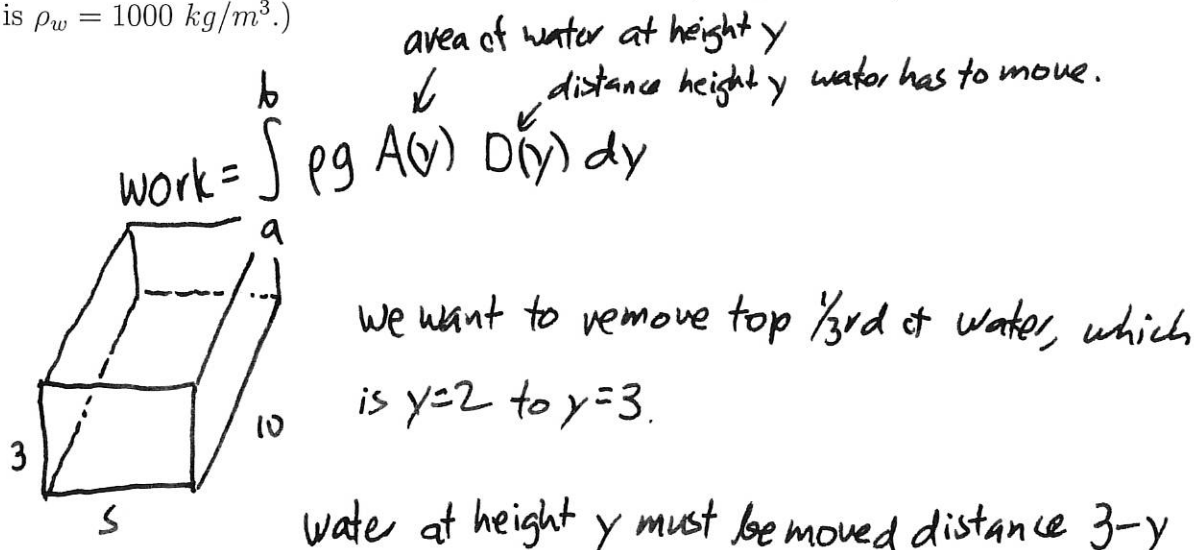 is ρ_w = 1000 kg/m³.)
area of water at height y
distance height y water has to move.
work = ∫_a^b ρg A(y) D(y) dy
we want to remove top 1/3rd of water, which
is y=2 to y=3.
3
10
5
water at height y must be moved distance 3-y